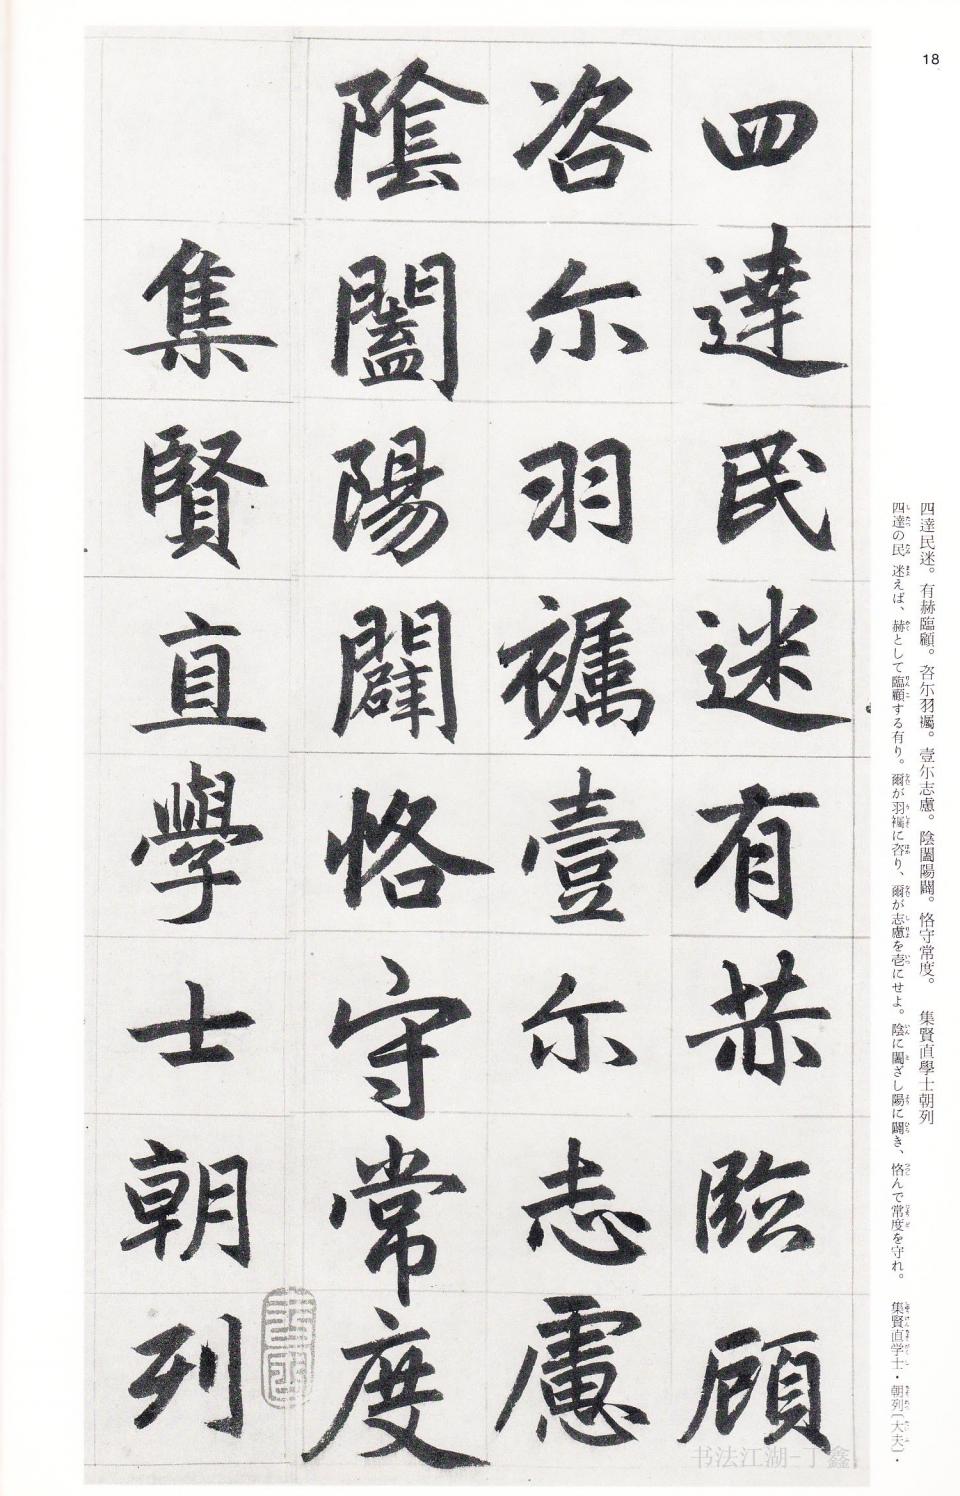 18
四達民迷有赫臨顧
咨尓羽襡壹尓志慮
陰闔陽闢恪守常度
集賢直學士朝列
四達民迷。有赫臨顧。咨尓羽襡。壹尓志慮。陰闔陽闢。恪守常度。　集賢直學士朝列
四達の民 迷えば、赫として臨顧する有り。爾が羽襡に咨り、爾が志慮を壱にせよ。陰に闔ざし陽に闢き、恪んで常度を守れ。　集賢直学士・朝列〔大夫〕・
书法江湖-丁鑫